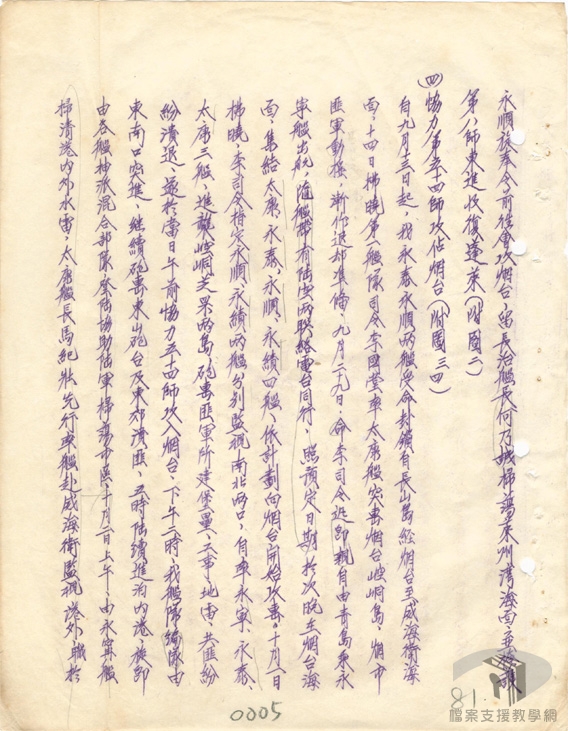 永順旋奉令前往會攻烟台,留長治艦長何乃誠掃蕩萊州灣海面,並
第八師東進收復蓬萊(附圖二)
(四)協力第五十四師攻佔烟台(附圖三四)
自九月十三日起,我永泰永順兩艦受命封鎖自長山島經烟台至威海衛海
面,十四日拂曉第一艦隊司令李國堂率太康艦突擊烟台崆峒島,烟市
匪軍動搖,漸作退却準備,九月二九日,命李司令返部親自由青島乘永
寧艦出航,隨艦帶有陸空兩聯絡電台同行,照預定日期於次晚至烟台海
面,集結太康,永泰,永順,永績四艦,依計劃向烟台開始攻擊,十月一日
拂曉,李司令指定永順,永績兩艦分別監視南北兩口,自率永寧,永泰,
太康三艦,進龍崆峒芝罘兩島砲擊匪軍所建堡壘,工事,地雷,共匪紛
紛潰退,遂於當日午前協力五十四師攻入烟台,下午二時,我艦隊續由
東南口突進,繼續砲擊東山砲台及東郊潰匪,五時陸續進泊內港,旋即
由各艦抽派混合部隊登陸協助陸軍掃蕩市區,十月二日上午,由永寧艦
掃清港內外水雷,太康艦長馬紀壯先行率艦赴威海衛監視港外,職於
0005
81
檔案支援教學網